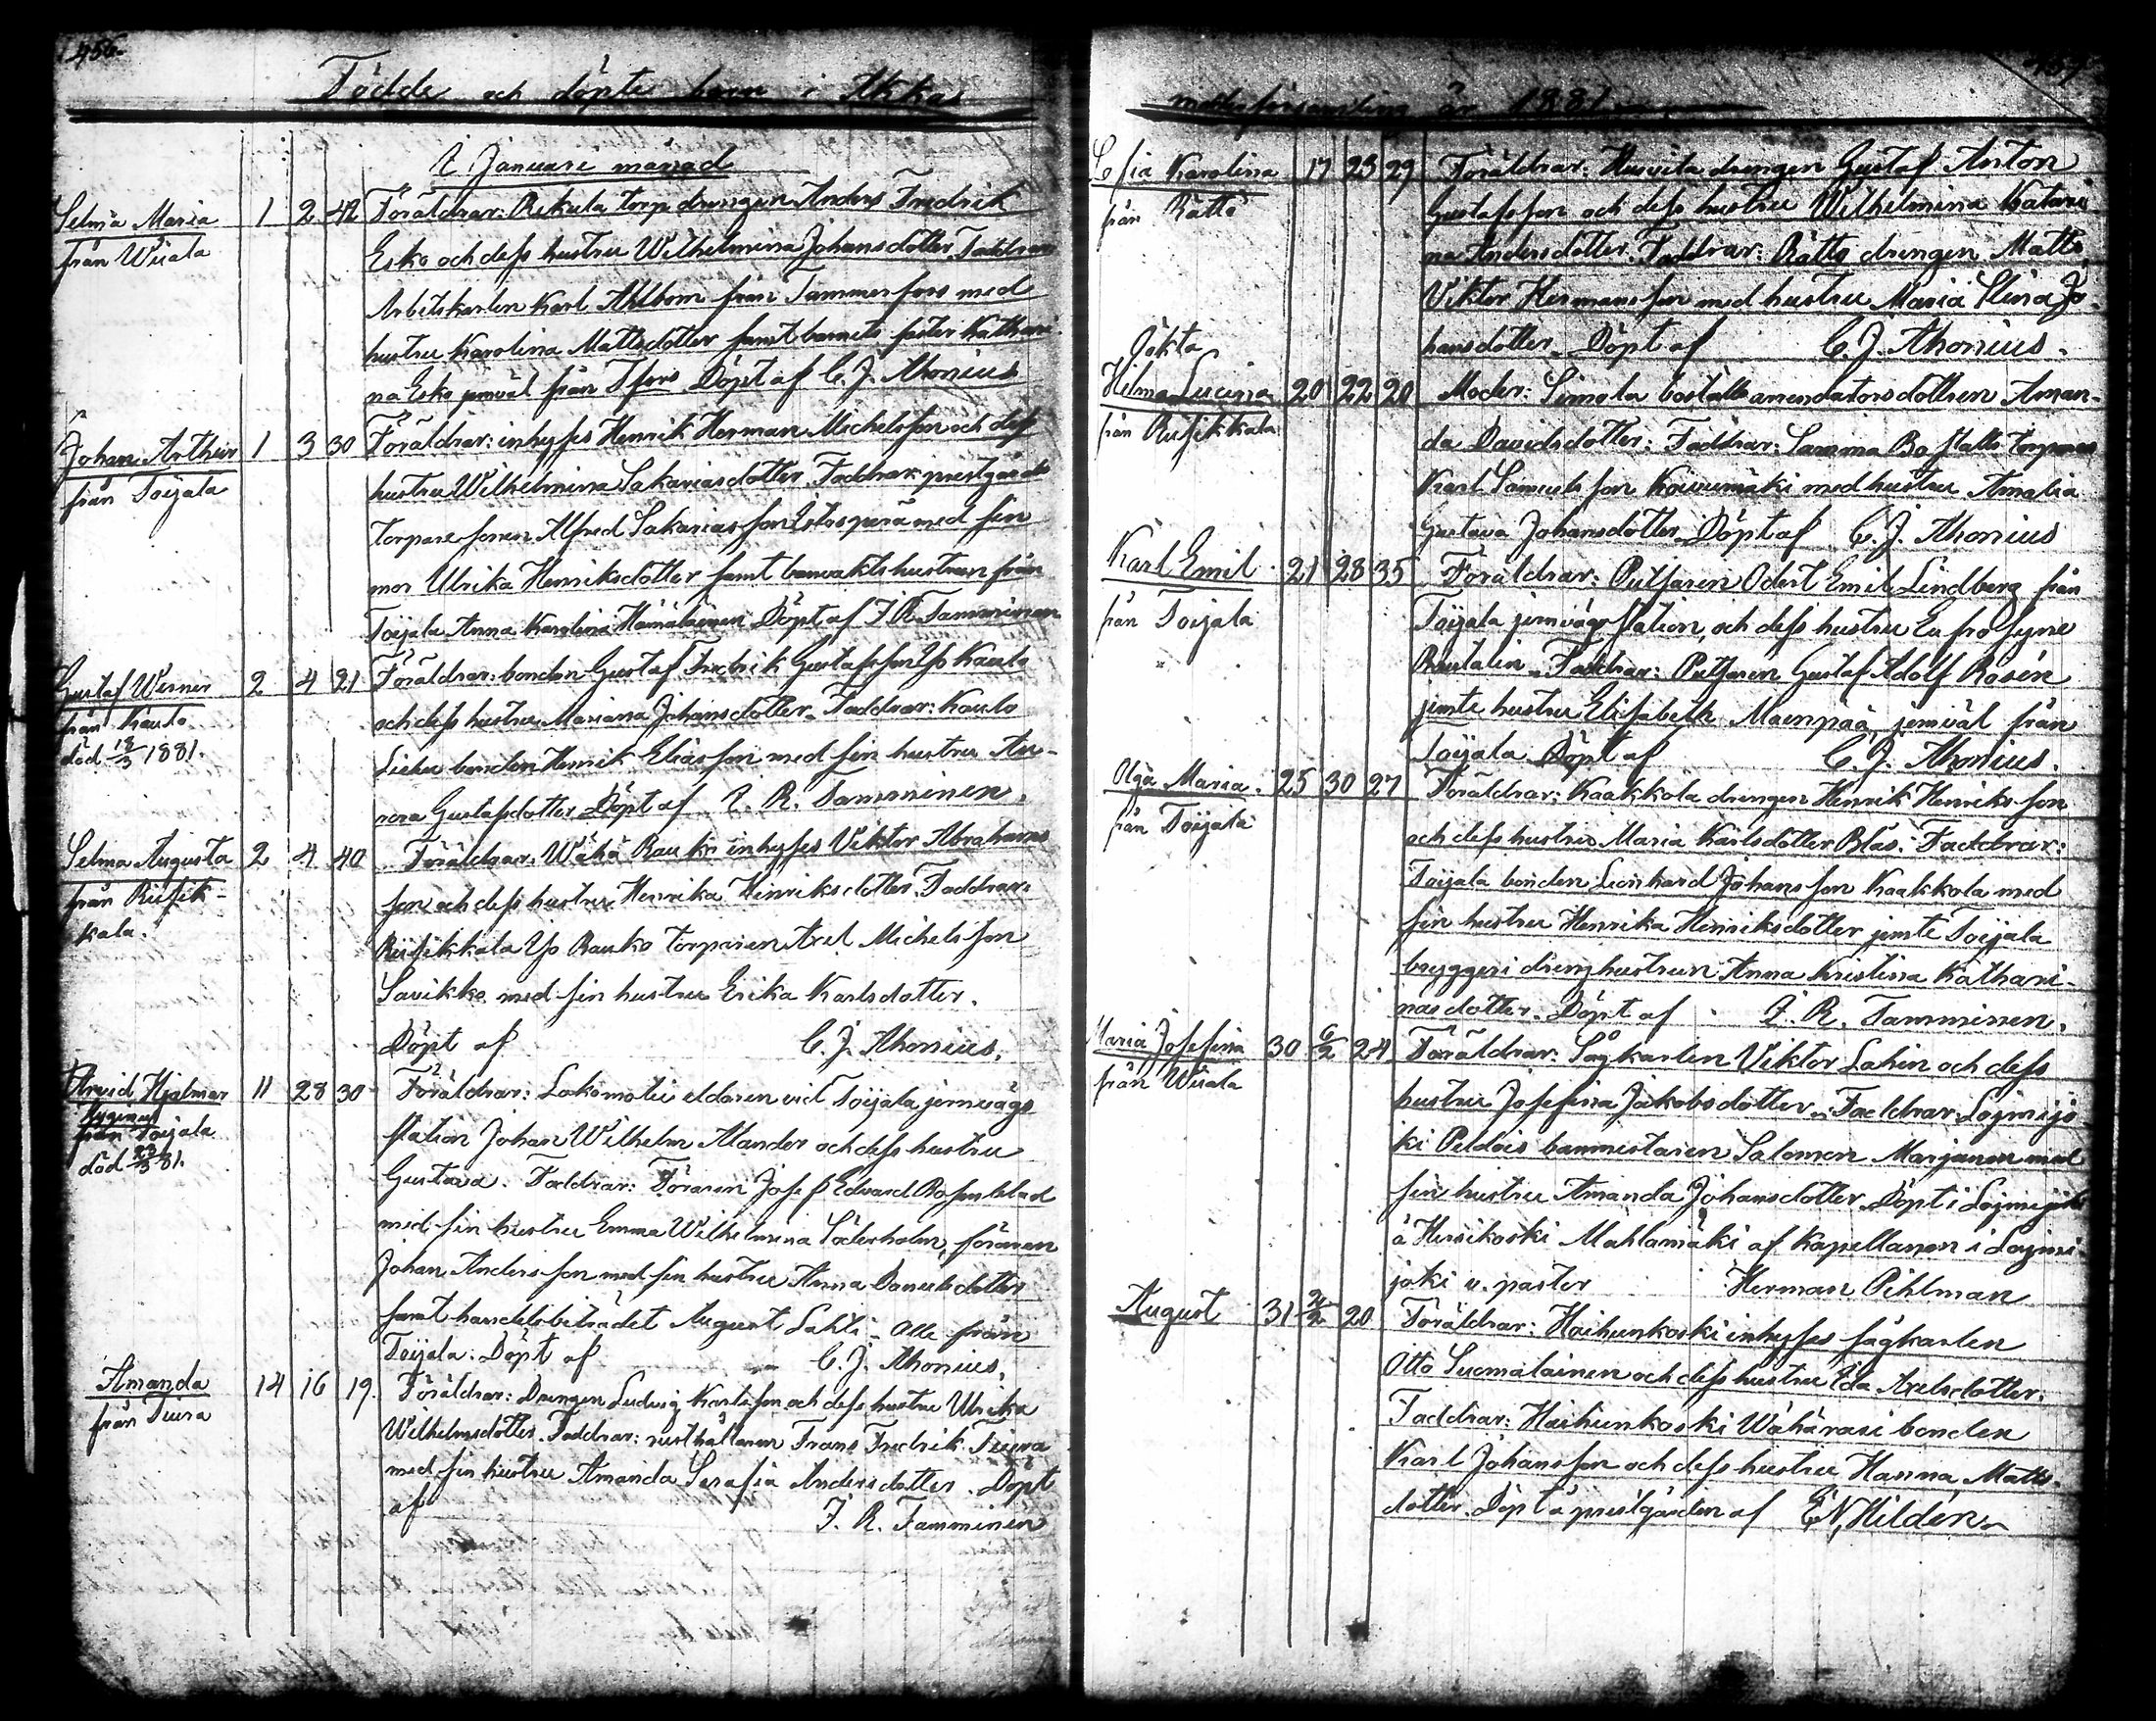 456.
Födde och döpte barn i Akkas
I Januari månad
Selma Maria 1 2 42 Föräldrar: Rekula torp drengen Anders Fredrik
från Wiiala Esko och dess hustru Wilhelmina Johansdotter. Faddrar
Arbetskarlen Karl Ahlbom från Tammerfors med
hustru Karolina Mattsdotter samt barnets faster Kathari-
na Esko jemväl från Tfors. Döpt af C. J. Ahonius
Johan Arthur 1 3 30 Föräldrar: inhyses Henrik Herman Michelsson och dess
från Toijala hustru Wilhelmina Sakariasdotter. Faddrar: prestgårds
torpare sonen Alfred Sakariasson Eskosperä med sin
mor Ulrika Henriksdotter samt banvakts hustrun från
Toijala Anna Karolina Hämäläinen. Döpt af J. R. Tamminen
Gustaf Werner 2 4 21 Föräldrar: bonden Gustaf Fredrik Gustafsson Yp Kauto
från Kauto och dess hustru Mariana Johansdotter. Faddrar: Kauto
död 18/3 1881. bonden Henrik Eliasson med sin hustru
Gustafsdotter. Döpt af J. R. Tamminen.
Selma Augusta 2 4 40 Föräldrar: Wähä Rauko inhyses Viktor Abrahams
från Riisik- son och dess hustru Henrika Henriksdotter. Faddrar:
kala. Riisikkala Yp Rauko torparen Axel Michelsson
Savikko med sin hustru Erika Karlsdotter.
Döpt af C. J. Ahonius.
Arvid Hjalmar 11 28 30 Föräldrar: Lokomotiv eldaren vid Toijala jernvägs
från Toijala station Johan Wilhelm Alander och dess hustru
död 81. Gustava. Faddrar: Föraren Josef Edvard Rosenblad
med sin hustru Emma Wilhelmina Söderholm, föraren
Johan Andersson med sin hustru Anna Danielsdotter
samt handelsbiträdet August Lahti. Alle från
Toijala. Döpt af C. J. Ahonius.
Amanda 14 16 19. Föräldrar: Drengen Ludvig Karlsson och dess hustru Ulrika
från Tiura Wilhelmsdotter. Faddrar: rusthållaren Frans Fredrik Tiura
med sin hustru Amanda Serafia Andersdotter. Döpt
af J. R. Tamminen
457
moderförsamling år 1881
Sofia Karolina 17 23 29 Föräldrar: drengen Gustaf Anton
från Rättö Gustafsson och dess hustru Wilhelmina Katari-
na Andersdotter. Faddrar: Rättö drengen Matts
Viktor Hermansson med hustru Maria Stina Jo-
hansdotter. Döpt af C. J. Ahonius.
Oökta
Hilma Lucina 20 22 20 Moder: Simola boställs arrendatorsdottren Aman-
från Riisikkala da Davidsdotter. Faddrar: Samma Boställs torparen
Karl Samuelsson Koivumäki med hustru Amalia
Gustava Johansdotter. Döpt af C. J. Ahonius
Karl Emil 21 28 35 Föräldrar: Putsaren Odert Emil Lindberg från
från Toijala Toijala jernvägsstation, och dess hustru Eufrosyne
Faddrar: Putsaren Gustaf Adolf Rosén
jemte hustru Elisabeth Maenpää, jemväl från
Toijala. Döpt af C. J. Ahonius.
Olga Maria. 25 30 27 Föräldrar: Kaakkola drengen Henrik Henriksson
från Toijala och dess hustru Maria Karlsdotter Blås. Faddrar:
Toijala bonden Leonhard Johansson Kaakkola med
sin hustru Henrika Henriksdotter jemte Toijala
bryggeri drenghustrun Anna Kristina Kathari-
nasdotter. Döpt af J. R. Tamminen.
Maria Josefina 30 6/2 24 Föräldrar: Sågkarlen Viktor Lahin och dess
från Wiiala hustru Josefina Jakobsdotter. Faddrar: Loimijo
ki Peldois banmestaren Salomon Marjanen med
sin hustru Amanda Johansdotter. Döpt i Loimijoki
å Hirsikoski Mahlamäki af Kapellanen i Loimi
joki v. pastor Herman Pihlman
August 31 2/2 20 Föräldrar: Haihunkoski inhyses sågkarlen
Otto Suomalainen och dess hustru Eda Axelsdotter.
Faddrar: Haihunkoski Wähärasi bonden
Karl Johansson och dess hustru Hanna Matts-
dotter. Döpt å prestgården af E. N. Hildén